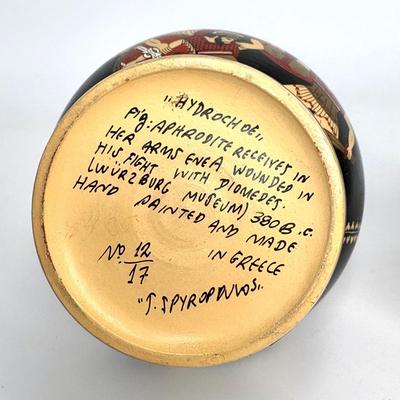 "HYDROCHOE"
Fig: APHRODITE RECEIVES IN
HER ARMS ENEA WOUNDED IN
HIS FIGHT WITH DIOMEDES.
(WÜRZBURG MUSEUM) 380 B.C.
HAND PAINTED AND MADE
IN GREECE
No 12/17
"S. SPYROPOULOS"